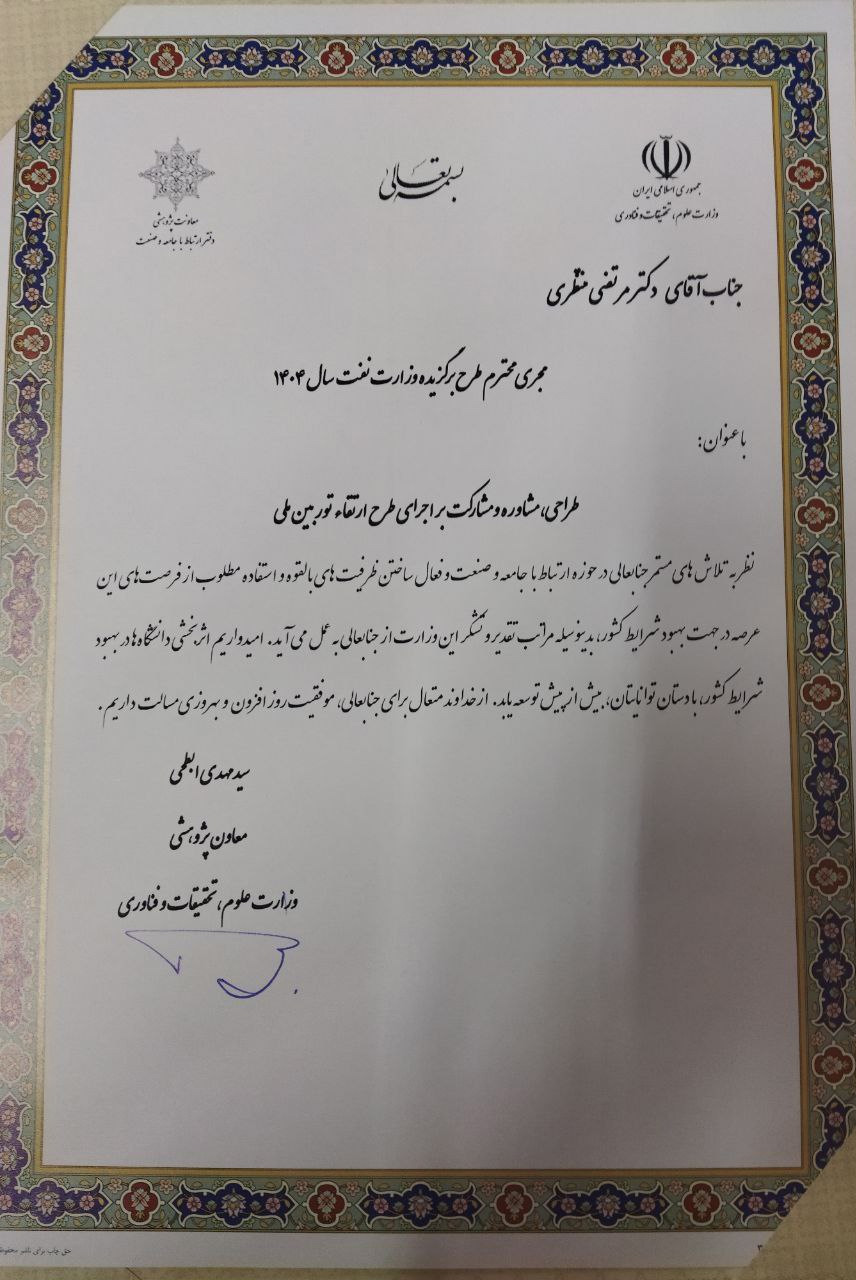 بسمه تعالی
جمهوری اسلامی ایران
وزارت علوم، تحقیقات و فناوری
معاونت پژوهشی
دفتر ارتباط با جامعه و صنعت
جناب آقای دکتر مرتضی منظری
مجری محترم طرح برگزیده وزارت نفت سال ۱۴۰۴
با عنوان:
طراحی، مشاوره و مشارکت بر اجرای طرح ارتقاء توربین ملی
نظر به تلاش های مستمر جنابعالی در حوزه ارتباط با جامعه و صنعت و فعال ساختن ظرفیت های بالقوه و استفاده مطلوب از فرصت های این
عرصه در جهت بهبود شرایط کشور، بدینوسیله مراتب تقدیر و تشکر این وزارت از جنابعالی به عمل می آید. امیدواریم اثربخشی دانشگاه ها در بهبود
شرایط کشور، با دستان توانایتان، بیش از پیش توسعه یابد. از خداوند متعال برای جنابعالی، موفقیت روز افزون و بهروزی مسالت داریم.
سید مهدی ابطحی
معاون پژوهشی
وزارت علوم، تحقیقات و فناوری
حق چاپ برای ناشر محفوظ